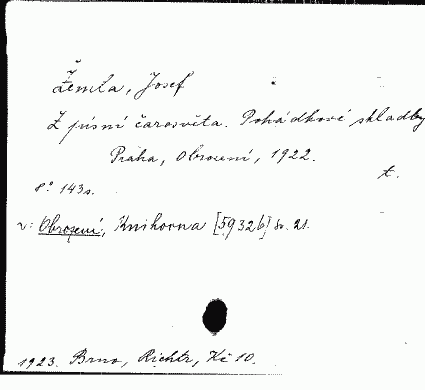 Žemla, Josef
Z písní čarosvěta. Pohádkové skladby
Praha, Obrození, 1922.
t.
8° 143 s.
v: Obrození, Knihovna [59326] sv. 21.
1923. Brno, Richtr, Kč 10.